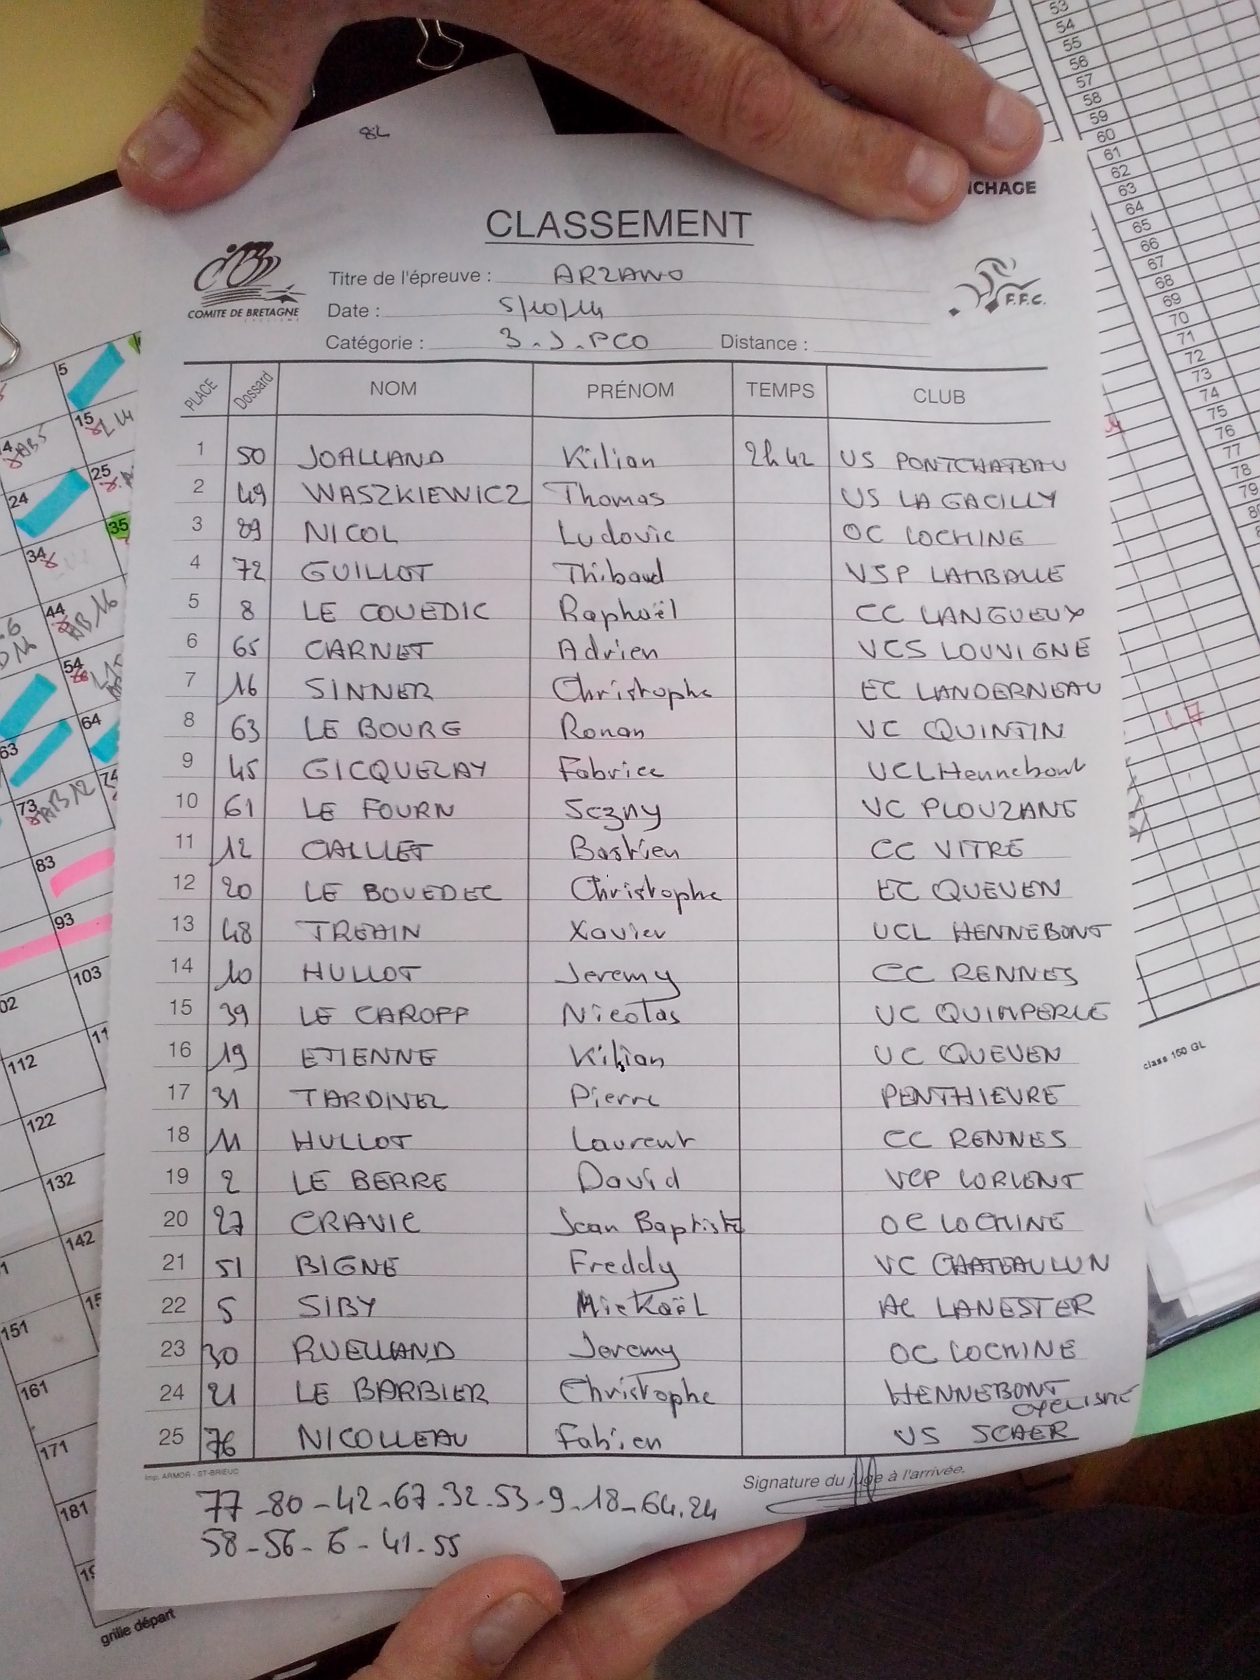 82
ICHAGE
CLASSEMENT
COMITE DE BRETAGNE
CYCLISME
F.F.C.
Titre de l'épreuve : ARZANO
Date : 5/10/14
Catégorie : 3.J.PCO Distance :
PLACE Dossard NOM PRÉNOM TEMPS CLUB
1 50 JOALLAND Kilian 2h42 US PONTCHATEAU
2 49 WASZKIEWICZ Thomas US LA GACILLY
3 89 NICOL Ludovic OC LOCMINE
4 72 GUILLOT Thibaud VSP LAMBALLE
5 8 LE COUEDIC Raphaël CC LANGUEUX
6 65 CARNET Adrien VCS LOUVIGNE
7 16 SINNER Christophe EC LANDERNEAU
8 63 LE BOURG Ronan VC QUINTIN
9 45 GICQUELAY Fabrice UCL Hennebont
10 61 LE FOURN Sezny VC PLOUZANE
11 12 CALLET Bastien CC VITRE
12 20 LE BOUEDEC Christophe EC QUEVEN
13 48 TREHIN Xavier UCL HENNEBONT
14 10 HULLOT Jeremy CC RENNES
15 39 LE CAROFF Nicolas UC QUIMPERLE
16 19 ETIENNE Kilian UC QUEVEN
17 31 TARDIVEL Pierre PENTHIEVRE
18 11 HULLOT Laurent CC RENNES
19 2 LE BERRE David VCP LORIENT
20 27 CRAVIC Jean Baptiste OC LOCMINE
21 51 BIGNE Freddy VC CHATEAULUN
22 5 SIBY Mickaël AC LANESTER
23 30 RUELLAND Jeremy OC LOCMINE
24 21 LE BARBIER Christophe HENNEBONT
cyclisme
25 76 NICOLLEAU Fabien US SCAER
Imp. ARMOR - ST-BRIEUC
Signature du juge à l'arrivée.
77-80-42-67-32-53-9-18-64.24
58-56-6-41-55
grille départ
class 150 GL
5
15
24
25
34
35
44
54
63
64
73
74
83
93
103
112
122
132
142
151
161
171
181
53
54
55
56
57
58
59
60
61
62
63
64
65
66
67
68
69
70
71
72
73
74
75
76
77
78
79